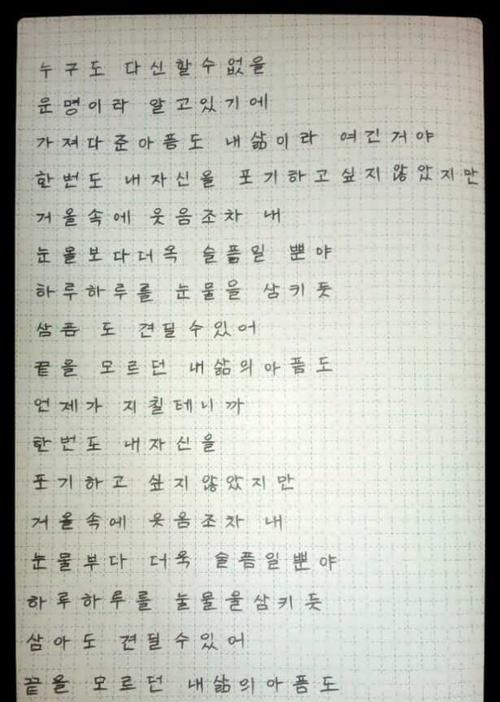 누구도 다신할수없을
운명이라 알고있기에
가져다준아픔도 내삶이라 여긴거야
한번도 내자신을 포기하고싶지않았지만
거울속에 웃음조차 내
눈물보다더욱 슬픔일 뿐야
하루하루를 눈물을 삼키듯
삼픔 도 견딜수있어
끝을 모르던 내삶의아픔도
언제가 지칠테니까
한번도 내자신을
포기하고 싶지않았지만
거울속에 웃음조차 내
눈물부다 더욱 슬픔일뿐야
하루하루를 눌물을삼키듯
삼아도 견딜수있어
끝을 모르던 내삶의아픔도